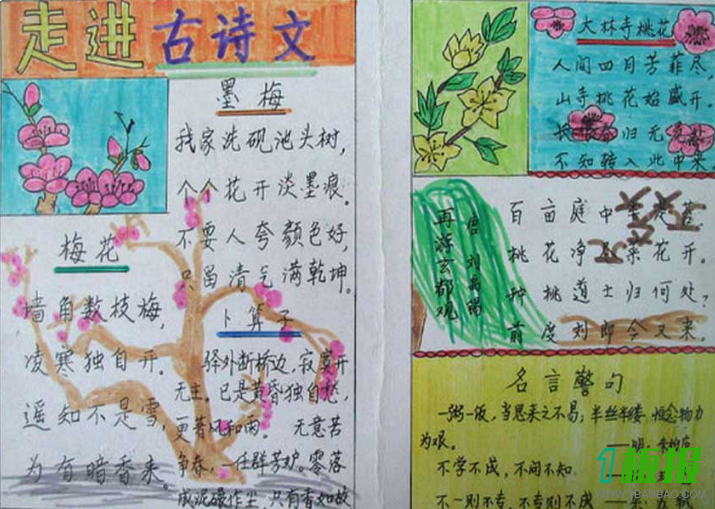 走进古诗文
墨梅
我家洗砚池头树，
个个花开淡墨痕。
不要人夸颜色好，
只留清气满乾坤。
梅花
墙角数枝梅，
凌寒独自开。
遥知不是雪，
为有暗香来。
卜算子
驿外断桥边，寂寞开
无主。已是黄昏独自愁，
更著风和雨。 无意苦
争春，一任群芳妒。零落
成泥碾作尘，只有香如故
大林寺桃花
人间四月芳菲尽，
山寺桃花始盛开。
长恨春归无觅处
不知转入此中来
再游玄都观
唐 刘禹锡
百亩庭中 是苔。
桃花净 菜花开。
种桃道士归何处？
前度刘郎今又来。
名言警句
一粥一饭，当思来之不易；半丝半缕，恒念物力
为艰。
——明．朱柏庐
不学不成，不问不知。
——王
不一则不专，不专则不成——朱
1板报
1BANBAO.COM